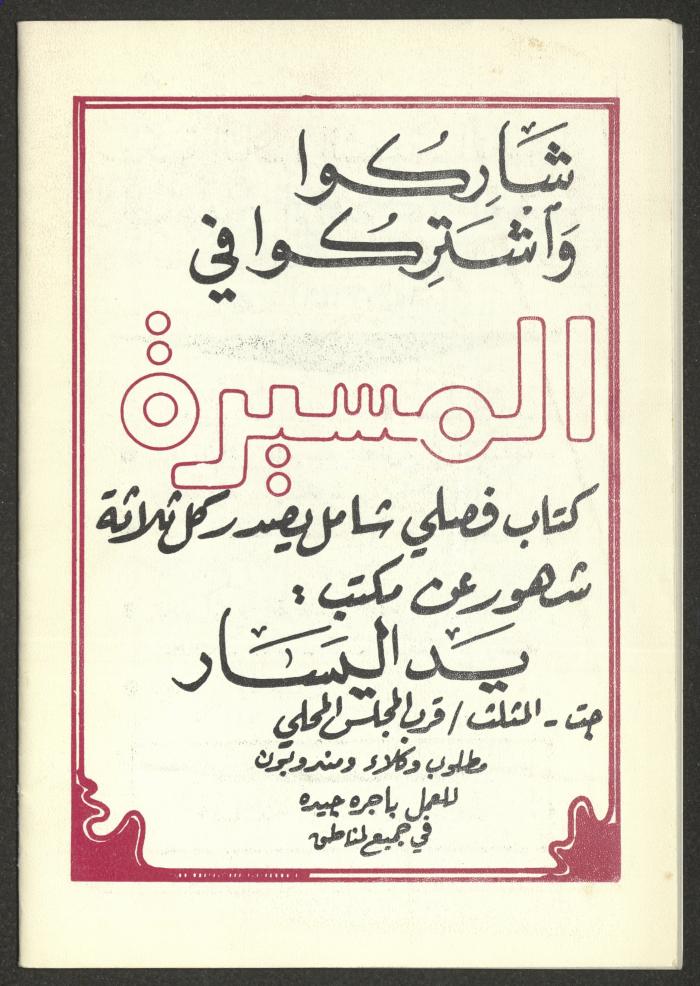 شَارِكُوا
وَاشْتَرِكُوا في
المسيرة
كتاب فصلي شامل يصدر كل ثلاثة
شهور عن مكتب :
يَد اليَسَار
جت - المثلث / قرب المجلس المحلي
مطلوب وكلاء ومندوبون
للعمل باجره جيده
في جميع لمناطق